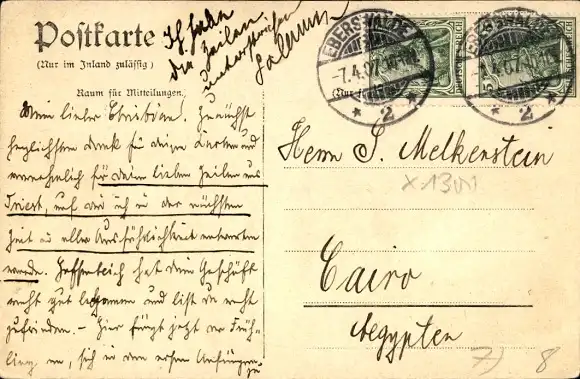 Postkarte
(Nur im Inland zulässig)
Raum für Mitteilungen.
Ich habe
die Zeilen
unterstrichen
EBERSWALDE
-7.4.07.
* 2 *
EBERSWALDE
-7.4.07.
* 2 *
(Nur
Mein lieber Christian. Zunächst
herzlichsten Dank für deine Karten und
vornehmlich für deine lieben Zeilen aus
Triest, auf die ich in der nächsten
Zeit in aller Ausführlichkeit antworten
werde. Hoffentlich hat dein Geschäft
recht gut begonnen und bist du recht
zufrieden. – Hier fängt jetzt der Früh-
ling an, sich in den ersten Anfängen zu
Herrn S. Melkenstein
Cairo
Aegypten
7)
8